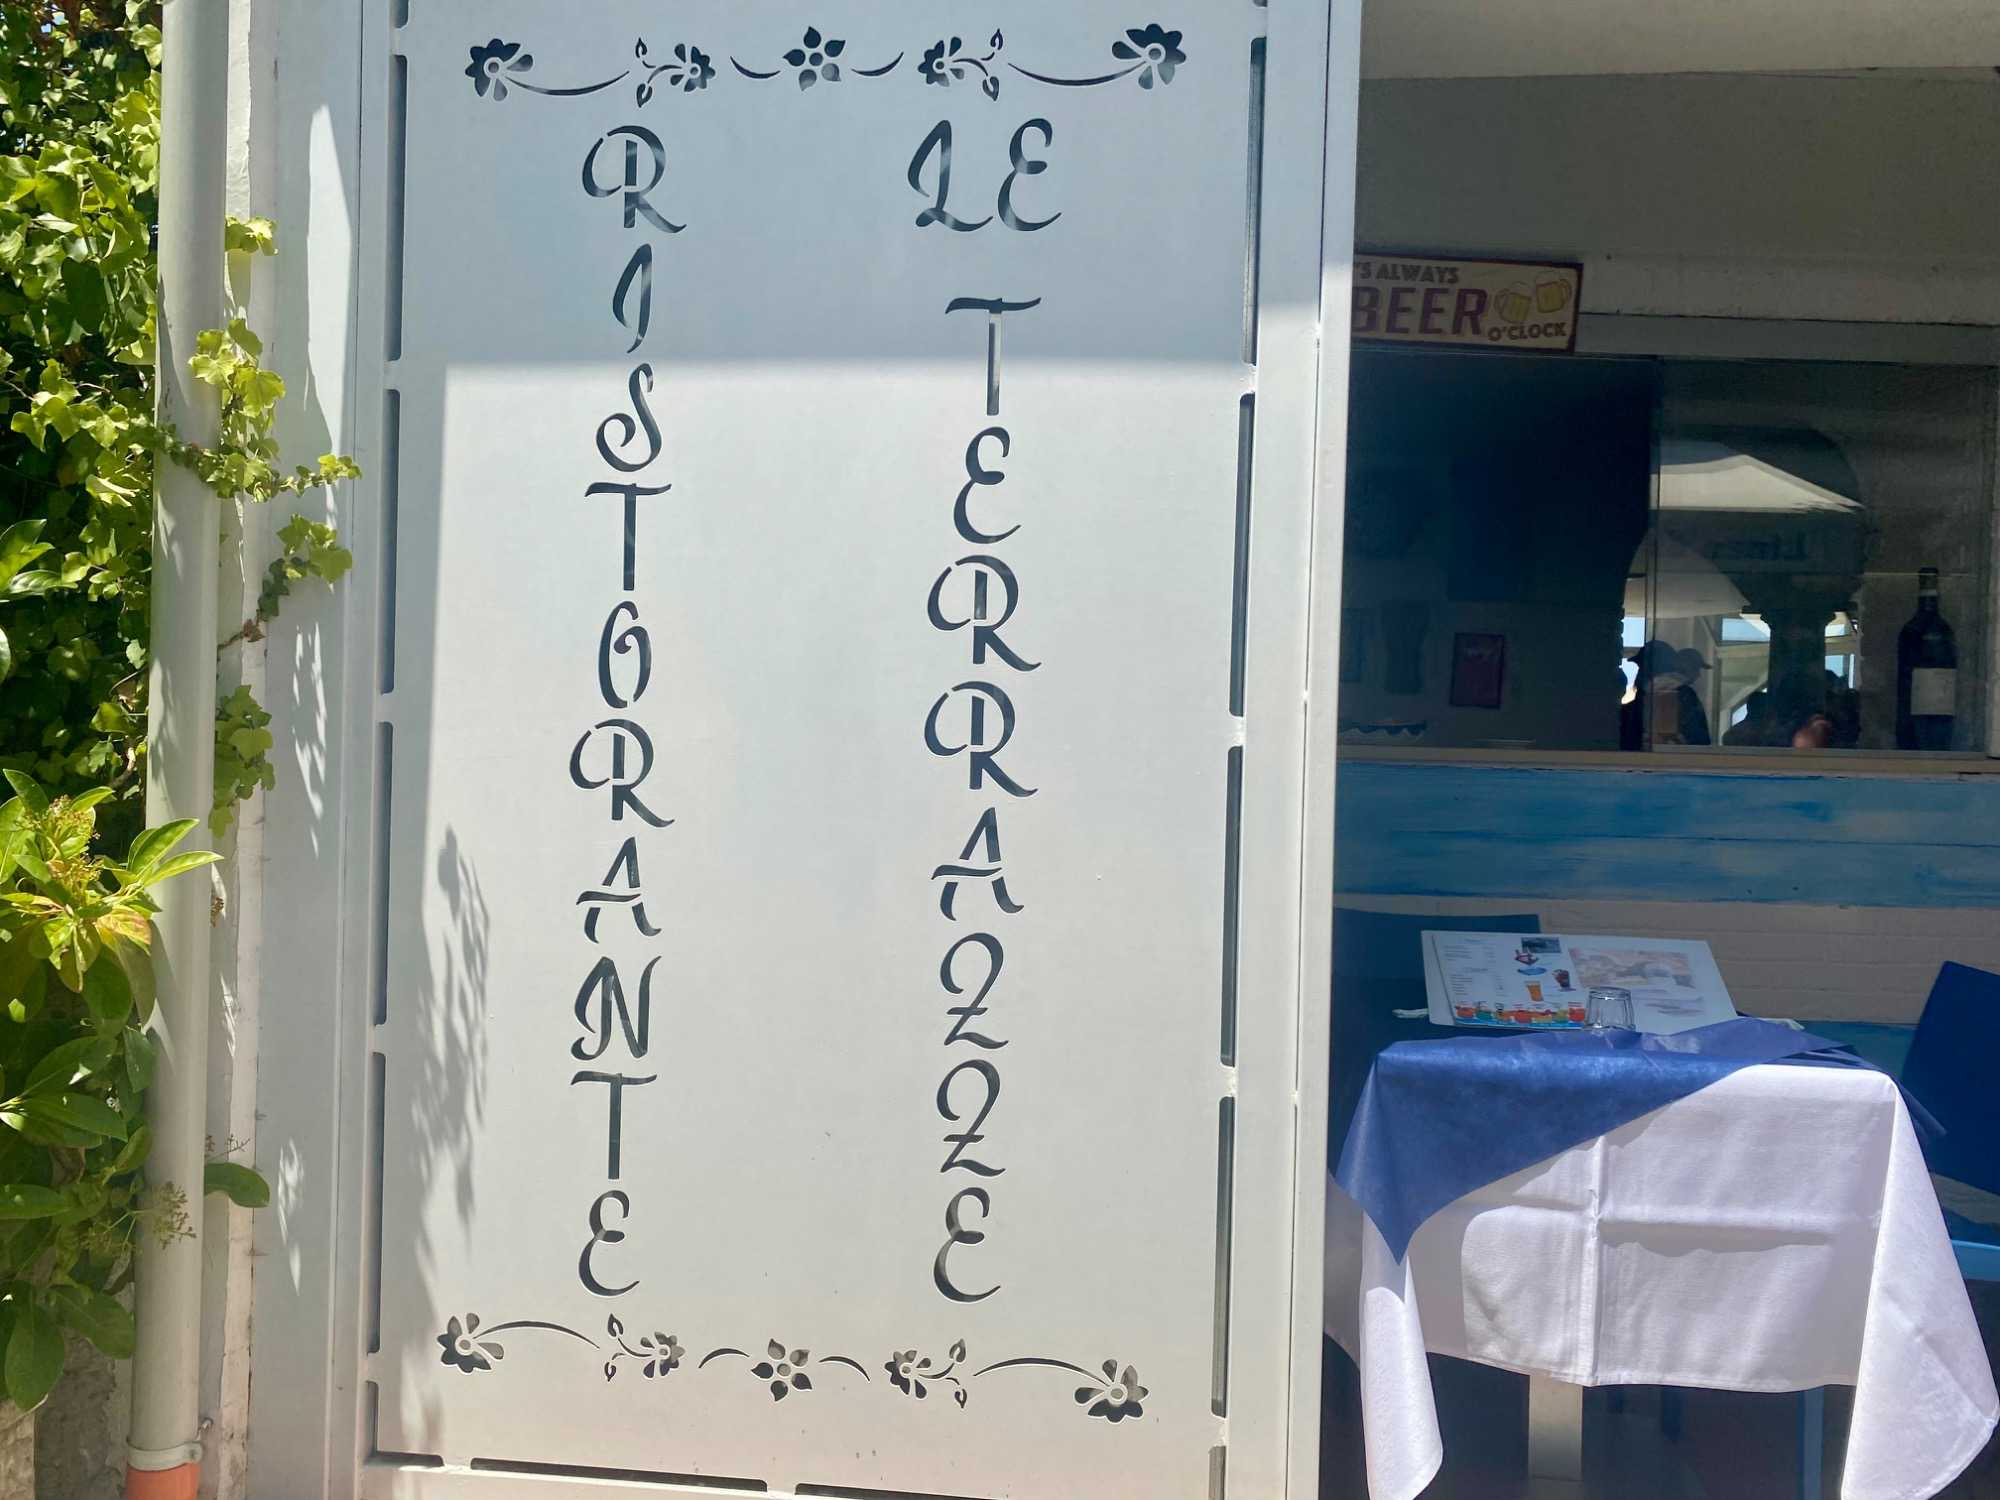 RISTORANTE
LE
TERRAZZE
'S ALWAYS
BEER
O'CLOCK